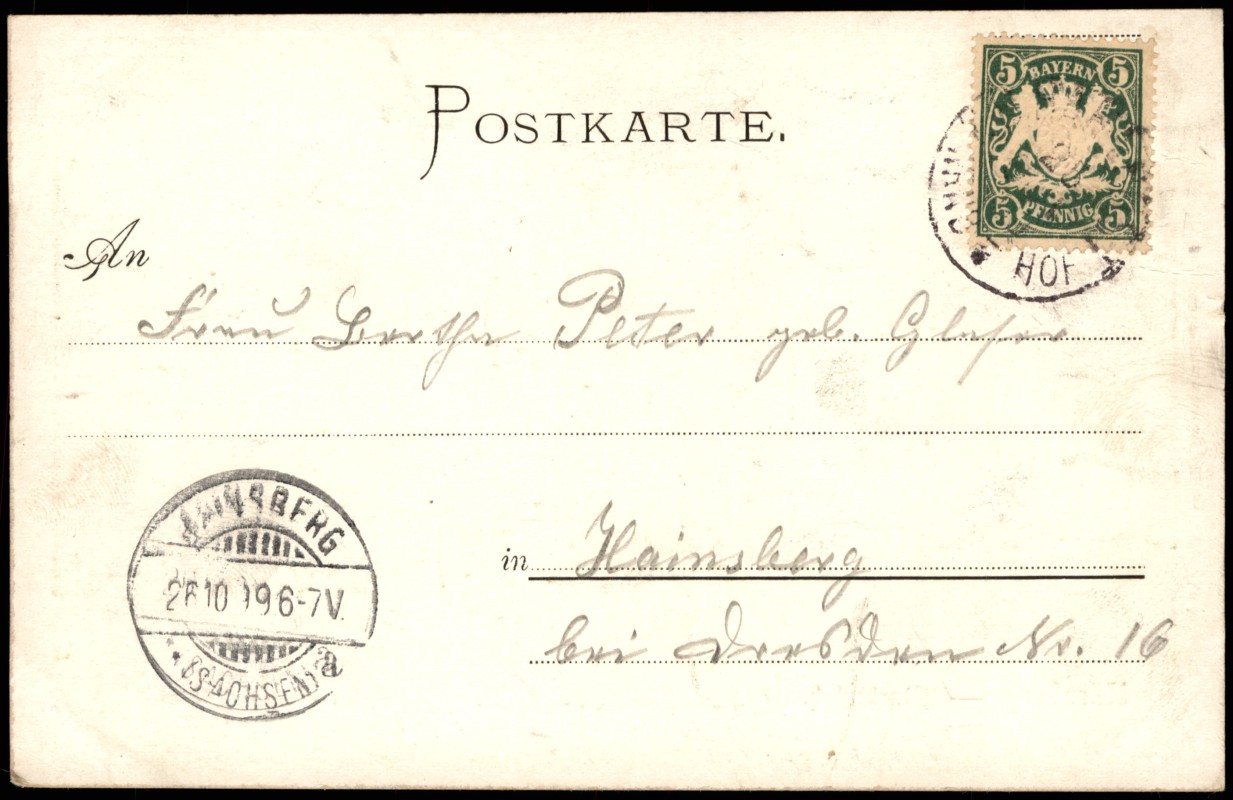 POSTKARTE.
5 BAYERN 5
5 PFENNIG 5
HOF
An
Frau Bertha Peter geb. Glaser
HAINSBERG
26 10 99 6-7V.
(SACHSEN) a
in Hainsberg
bei Dresden Nr. 16